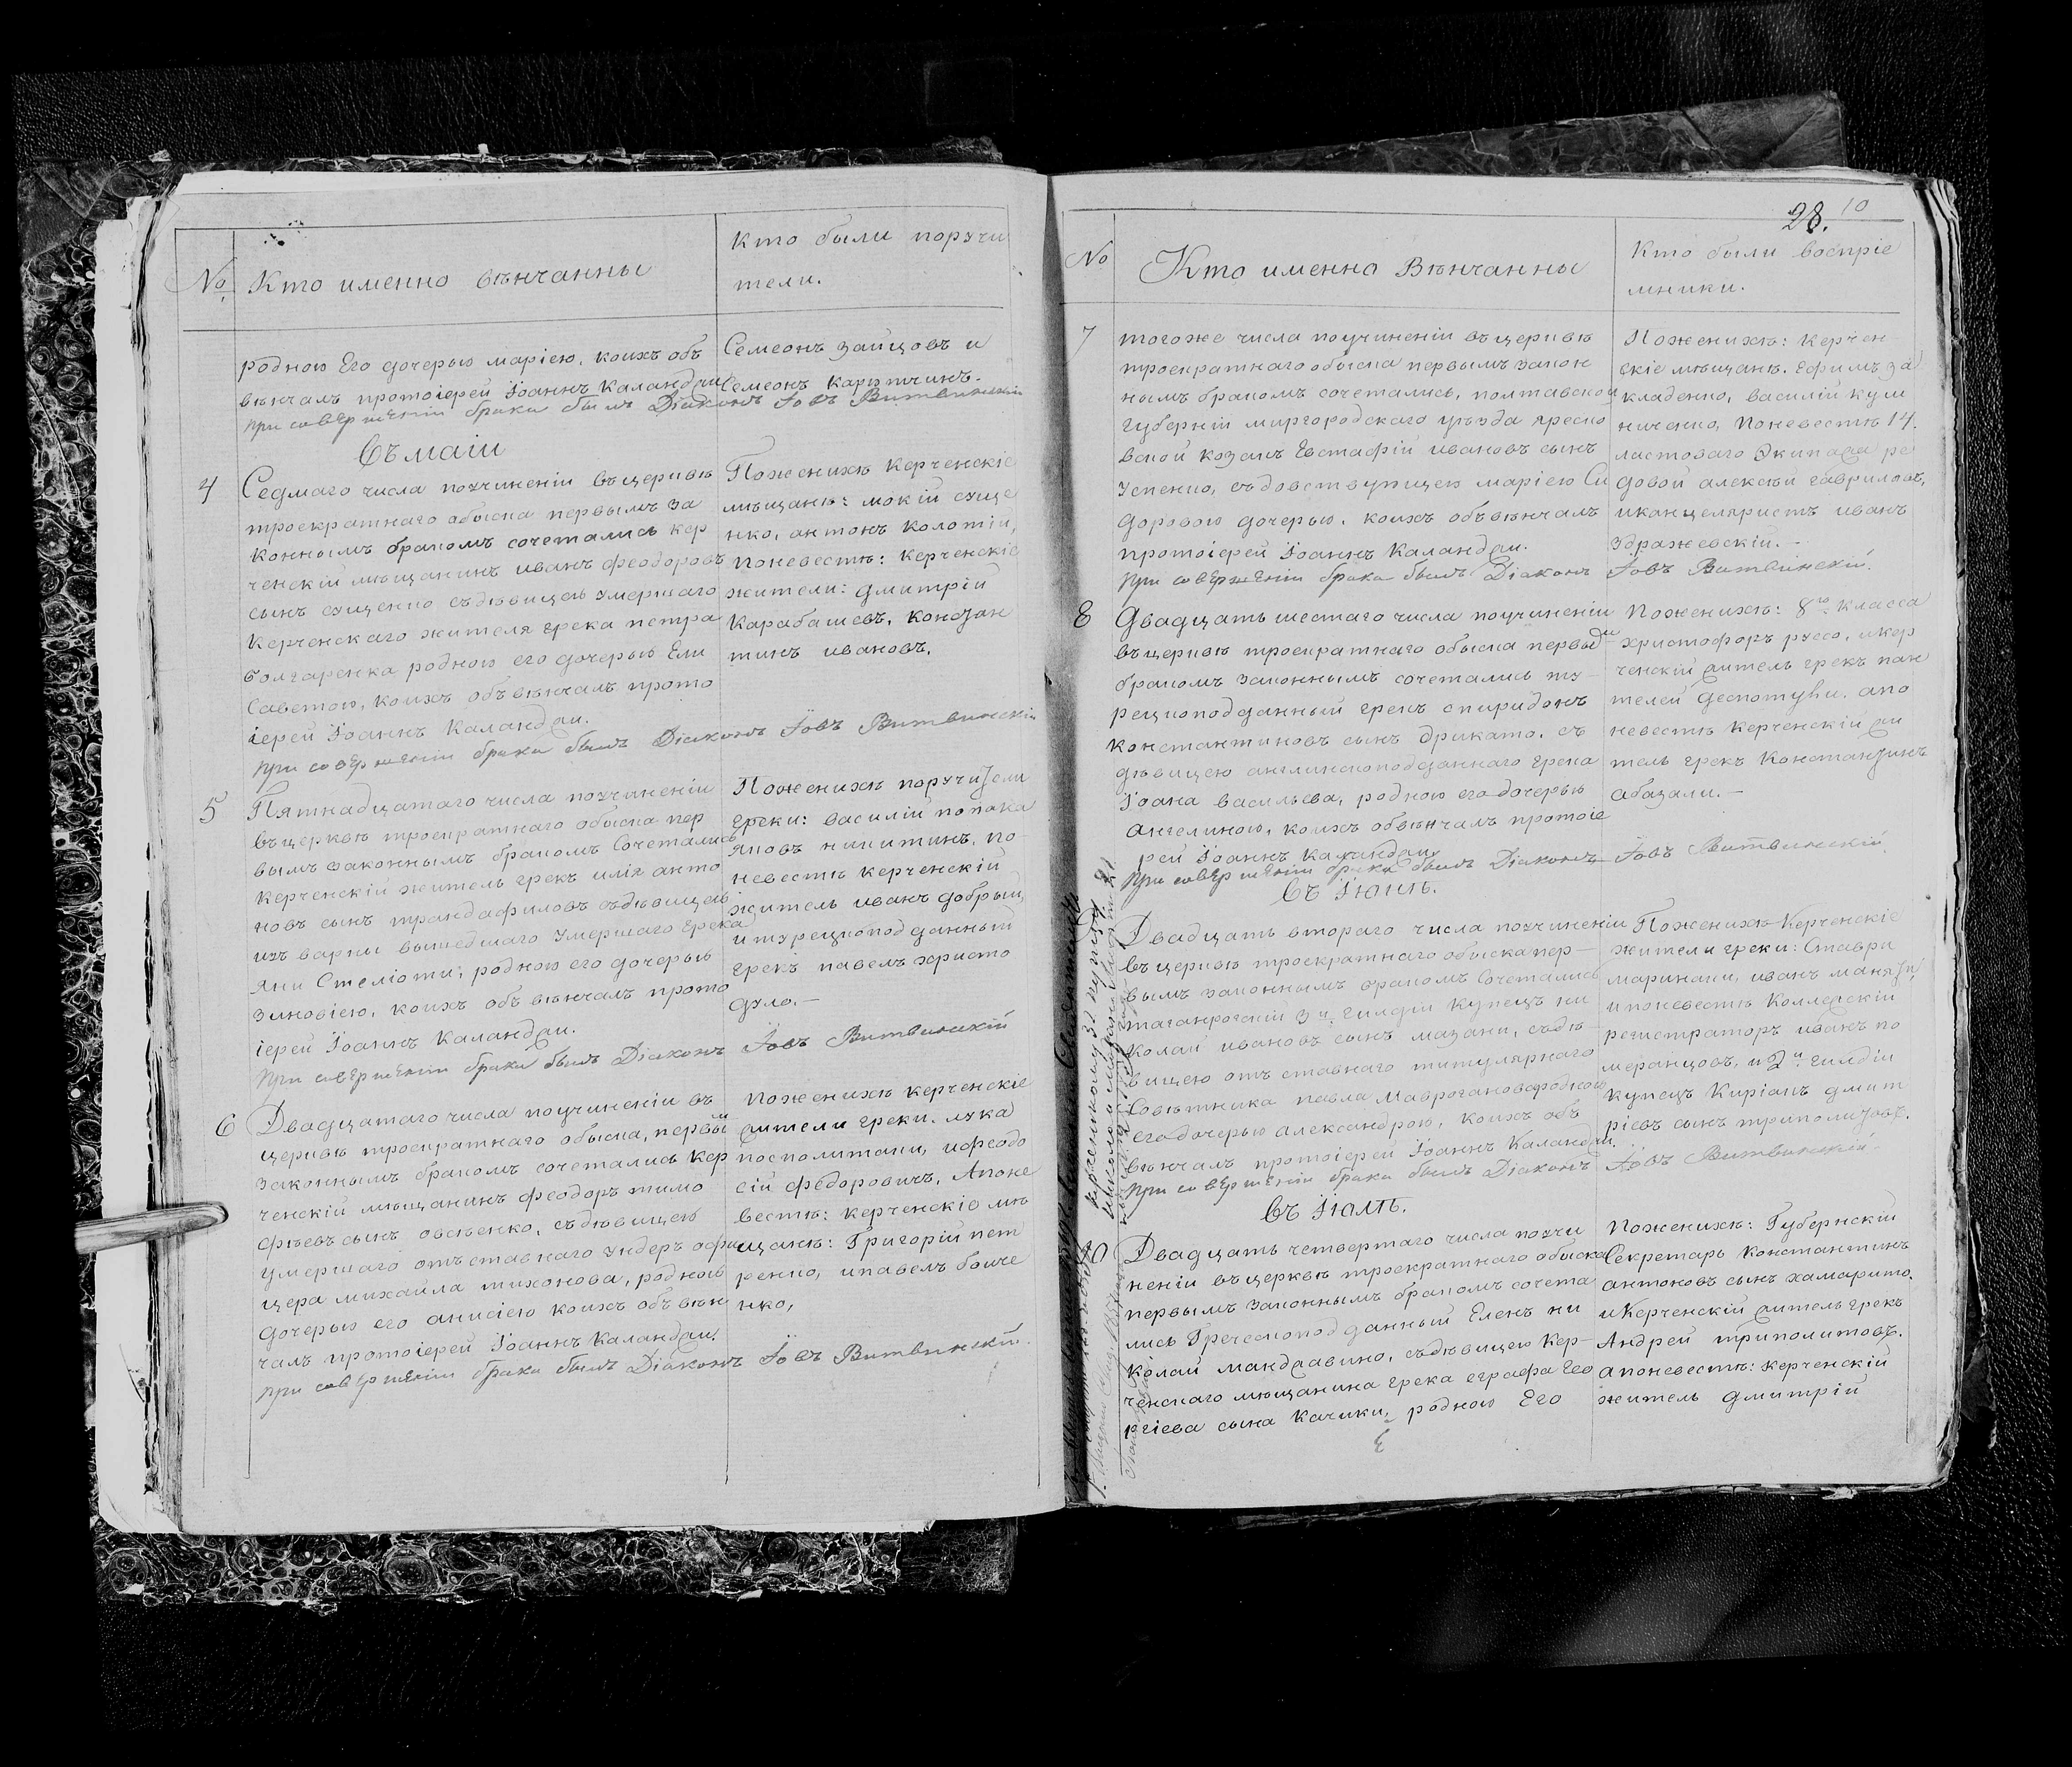 № Кто именно вѣнчанны
Кто были поручи
тели.
родною Его дочерью марiею, коихъ объ
вѣнчалъ протоiерей Iоаннъ Каландчи
Семеонъ зайцовъ и
Семеонъ
при совершенiи брака былъ Дiаконъ Iовъ Витвинскiй
Въ маiи
4
Седмаго числа поучиненiи въцерквѣ
троекратнаго обыска первымъ за
коннымъ бракомъ сочетались кер
ченскiй мѣщанинъ иванъ феодоровъ
сынъ сущенко съдѣвицею умершаго
Керченскаго жителя грека петра
болгаренка родною его дочерью Ели
саветою, коихъ объвѣнчалъ прото
iерей Iоаннъ Каландчи.
Поженихѣ Керченскiе
мѣщанѣ: мокiй суще
нко, антонъ колотiй,
поневестѣ: керченскiе
жители: дмитрiй
Карабашевъ, констан
тинъ ивановъ.
при совершенiи брака былъ Дiаконъ Iовъ Витвинскiй
5
Пятнадцатаго числа поучиненiи
въцерквѣ троекратнаго обыска пер
вымъ законнымъ бракомъ Сочетались
Керченскiй житель грекъ илiя анто
новъ сынъ трандафиловъ съдѣвицею
изъ варны вышедшаго умершаго грека
яни Стелiоти; родною его дочерью
зиновiею, коихъ объвѣнчалъ прото
iерей Iоаннъ Каландчи.
Поженихѣ поручители
греки: василiй попока
яковъ никитинъ, по-
невестѣ керченскiй
житель иванъ добрый,
итурецкоподданный
грекъ павелъ христо
дуло.—
при совершенiи брака былъ Дiаконъ Iовъ Витвинскiй
6
Двадцатаго числа поучиненiи въ
церквѣ троекратнаго обыска, первым
законнымъ бракомъ сочетались кер
ченскiй мѣщанинъ феодоръ тимо
фѣевъ сынъ овсѣенко, съдѣвицею
умершаго отъставнаго ундеръ офи
цера михаила тихонова, родною
дочерью его анисiею коихъ объвѣн
чалъ протоiерей Iоаннъ Каландчи.
Поженихѣ керченскiе
жители греки. лука
посполитаки, ифеодо
сiй федоровичъ, Апоне
вестѣ: керченскiе мѣ
щанѣ: Григорiй пет
ренко, ипавелъ бойче
нко,
при совершенiи брака былъ Дiаконъ Iовъ Витвинскiй.
28. 10
№ Кто именно Вѣнчанны
Кто были воспрiе
мники.
7
тогоже числа поучиненiи въцерквѣ
троекратнаго обыска первымъ закон
нымъ бракомъ сочетались, полтавской
губернiи миргородскаго уѣзда яреско
вской козакъ Евстафiй ивановъ сынъ
Усенко, съдовствующею марiею Си
доровою дочерью. коихъ объвѣнчалъ
протоiерей Iоаннъ Каландчи.
Поженихѣ: Керчен
скiе мѣщанѣ. Ефимъ за
кладенко, василiй кум
ниченко, Поневестѣ 14.
ластоваго Экипажа ря
довой алексѣй гавриловъ,
иканцеляристъ иванъ
Здражевскiй.—
при совершенiи брака былъ Дiаконъ Iовъ Витвинскiй.
8
Двадцать шестаго числа поучиненiи
въцерквѣ троекратнаго обыска первым
бракомъ законнымъ сочетались ту-
рецкоподданный грекъ спиридонъ
Константиновъ сынъ дрикато. съ
дѣвицею англинскоподданнаго грека
Iоана васильева, родною его дочерью
Ангелиною, коихъ обвѣнчалъ протоiе
рей Iоаннъ Каландчи
Поженихѣ: 8го класса
христофоръ руссо, икер
ченскiй житель грекъ пан
телей деспотули. апо
невестѣ Керченскiй жи
тель грекъ Константинъ
абазали.—
при совершенiи брака былъ Дiаконъ Iовъ Витвинскiй
Въ Iюнѣ.
Двадцать втораго числа поучиненiи
въцерквѣ троекратнаго обыска пер—
вымъ законнымъ бракомъ Сочетались
таганрогскiй 3й гилдiи Купецъ ни
колай ивановъ сынъ мазани, съдѣ
вицею отъставнаго титулярнаго
Совѣтника павла Маврогановародною
его дочерью александрою, Коихъ объ
вѣнчалъ протоiерей Iоаннъ Каландчи.
Поженихѣ Керченскiе
жители греки: Ставри
маринаки, иванъ
ипоневестѣ Коллежскiй
регистраторъ иванъ по
меранцовъ, и 2й гилдiи
купецъ Кирiакъ дмит
рiевъ сынъ триполитовъ.
при совершенiи брака былъ Дiаконъ Iовъ Витвинскiй
Въ Iюлѣ.
10
Двадцать четвертаго числа поучи
ненiи въцерквѣ троекратнаго обыска
первымъ законнымъ бракомъ сочета
лись Греческоподданный Еленъ ни
колай мандравино, съдѣвицею Кер-
ченскаго мѣщанина грека еграфа Гео
ргiева сына Качики, родною Его
Поженихѣ: Губернскiй
Секретарь Константинъ
антоновъ сынъ хамарито.
иКерченскiй житель грекъ
Андрей триполитовъ.
апоневестѣ: керченскiй
житель дмитрiй